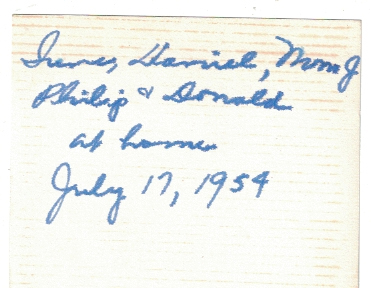 Irene, Daniel, Mom J
Philip & Donald
at home
July 17, 1954